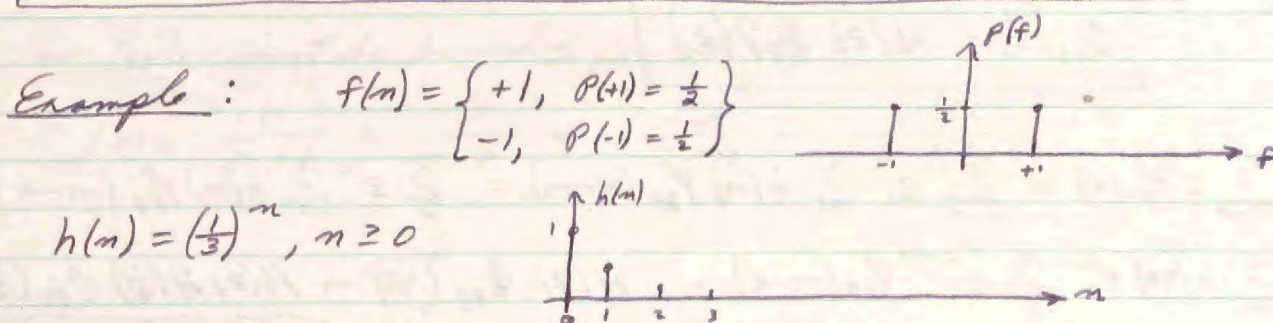 Example : f(n) = { +1, P(+1) = 1/2
-1, P(-1) = 1/2 }
P(f)
1/2
-1 +1 f
h(n) = (1/3)^n, n ≥ 0
h(n)
1
0 1 2 3 n